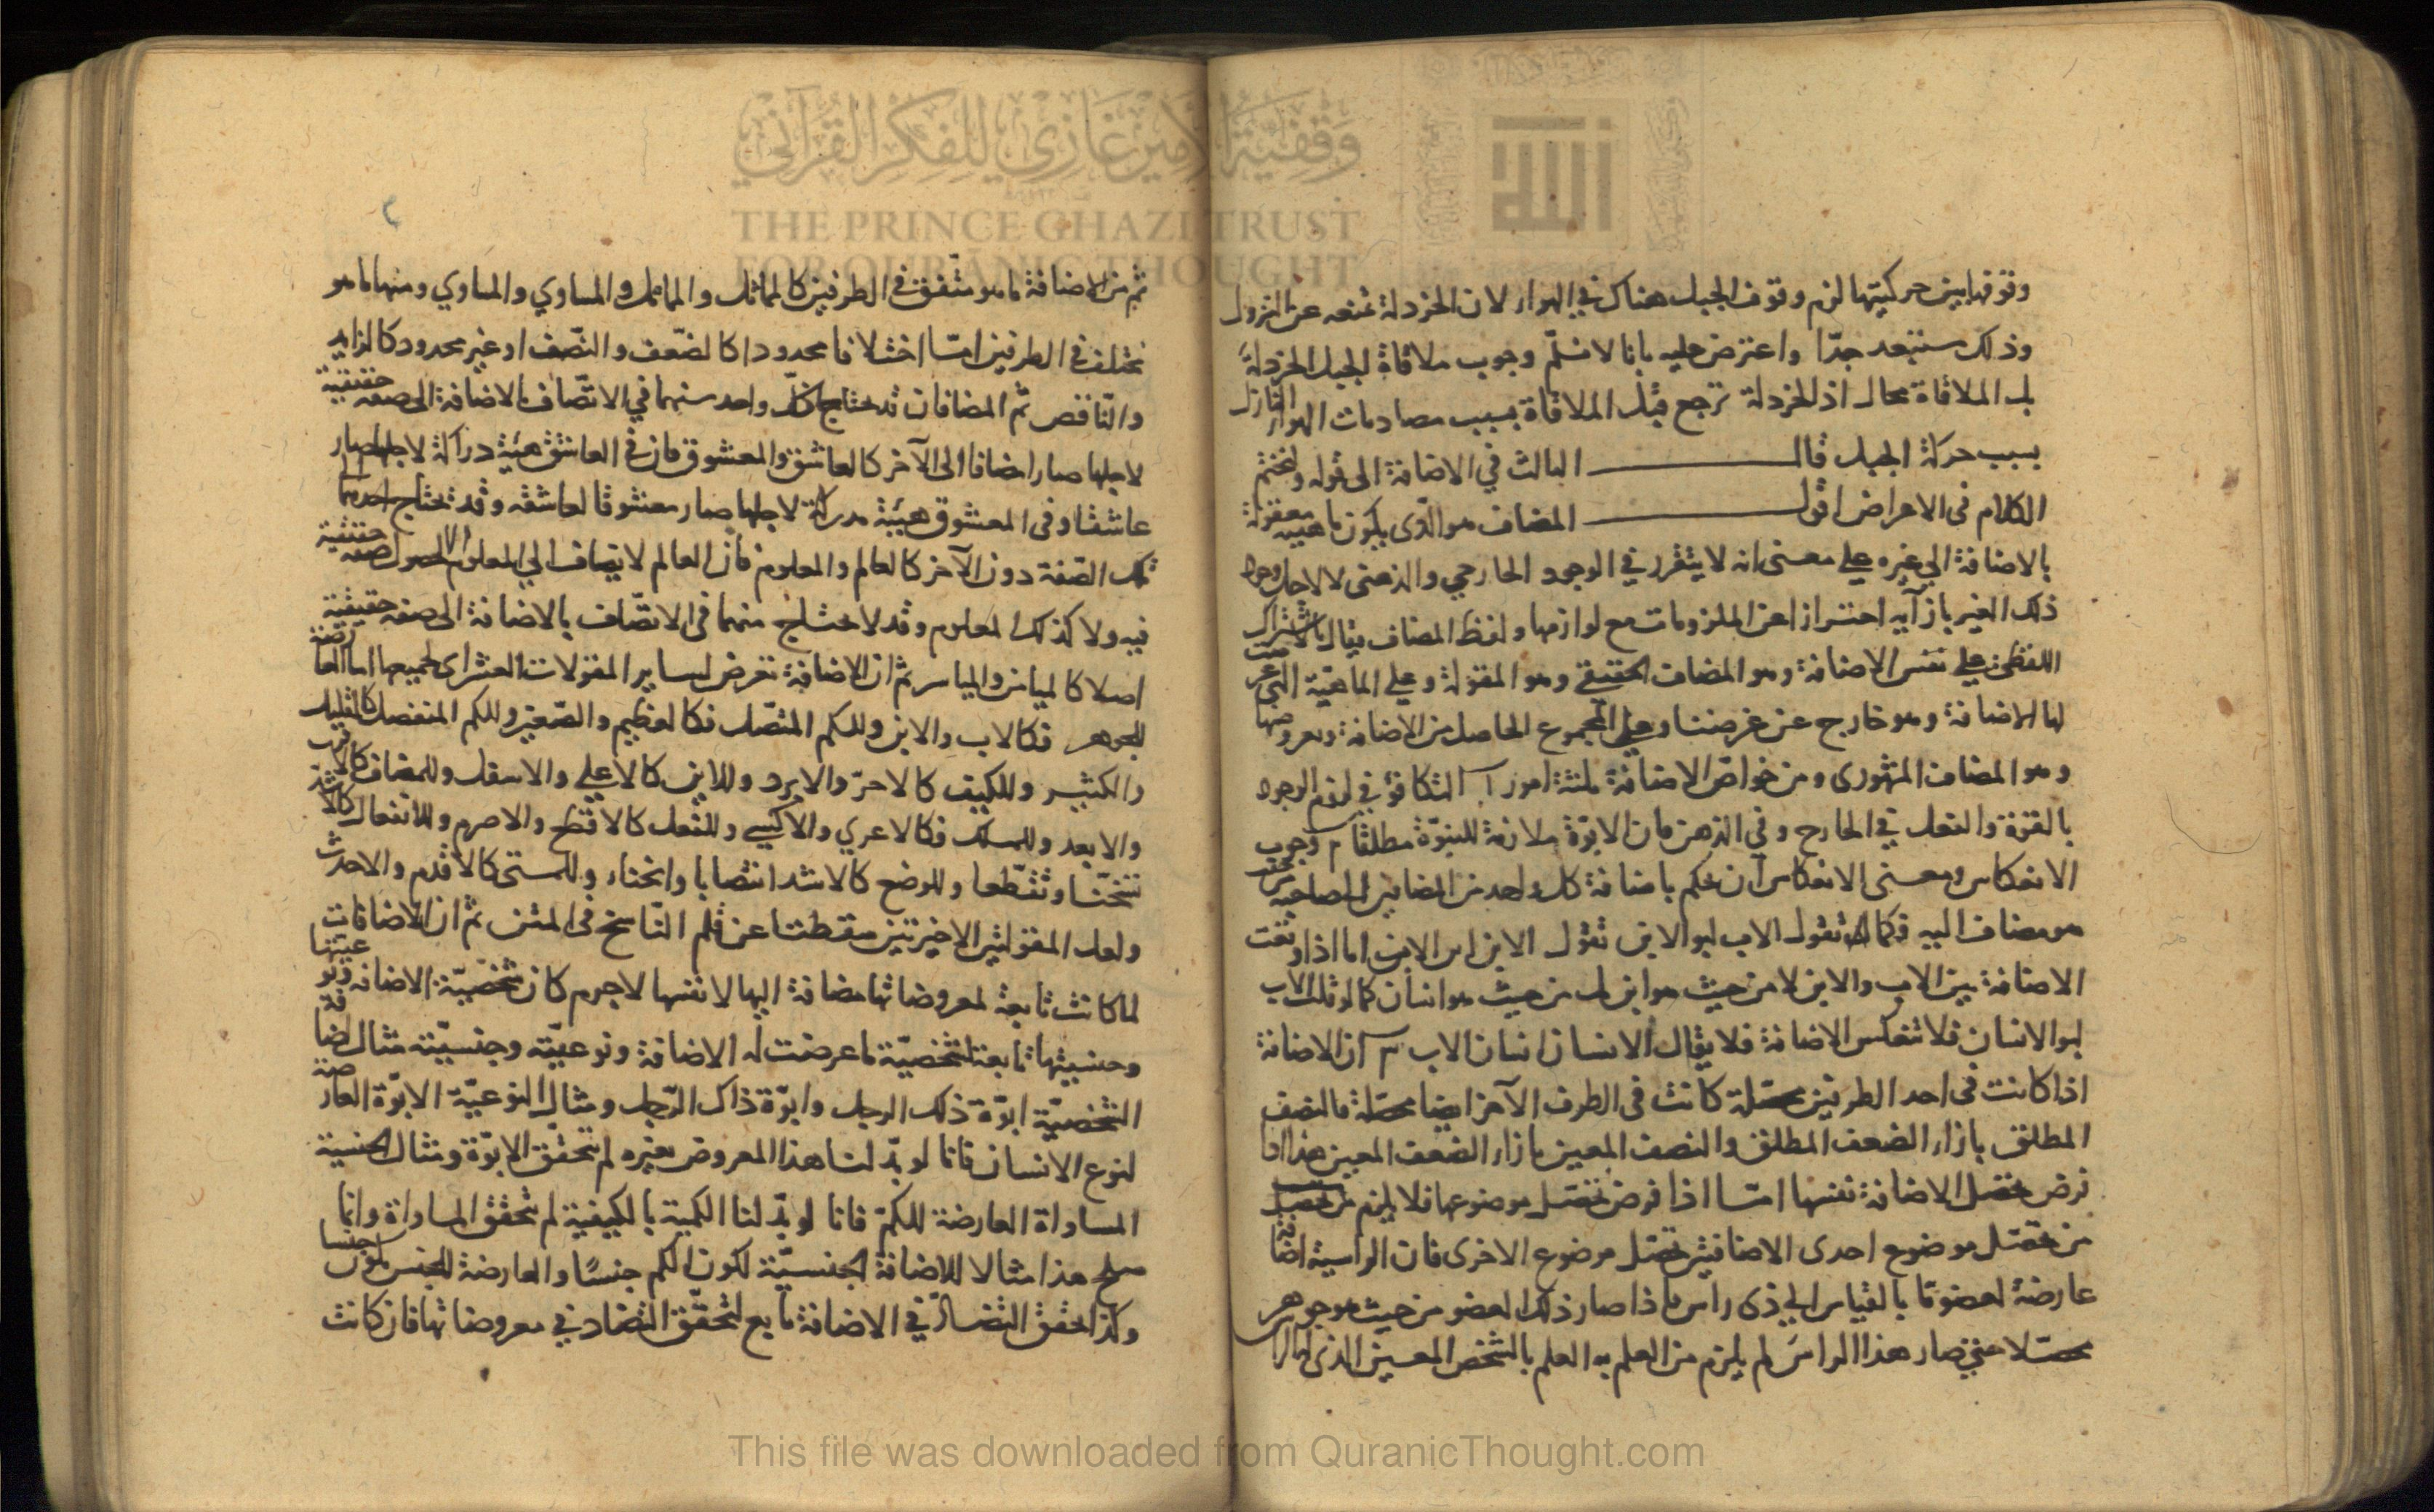 وقوفها بين حركتيها لزم وقوف الجبل هناك في الهواء لان الخردلة تمنعه عن النزول
وذلك مستبعد جدّا واعترض عليه بانا لا نسلّم وجوب ملاقاة الجبل الخردلة
بل الملاقاة محال اذ الخردلة ترجع قبل الملاقاة بسبب مصادمات الهواء النازل
بسبب حركة الجبل قال الثالث في الاضافة الى قوله ولنختم
الكلام فى الاعراض اقول المضاف هو الّذى يكون ماهيته معقولة
بالاضافة الى غيره على معنى انه لا يتقرر في الوجود الخارجي والذهنى الا لاجل وجود
ذلك الغير بازآيه احترازا عن الملزومات مع لوازمها ولفظ المضاف يقال بالاشتراك
اللفظى على نفس الاضافة وهو المضاف الحقيقي وهو المقولة وعلى الماهيّة التى عرضت
لها الاضافة وهو خارج عن غرضنا وعلى المجموع الحاصل من الاضافة ومعروضها
وهو المضاف المشهورى ومن خواصّ الاضافة ثلثة امور آ التكافؤ في لزوم الوجود
بالقوة والفعل في الخارج وفى الذهن فان الابوّة ملازمة للبنوّة مطلقا ب وجوب
الانعكاس ومعنى الانعكاس ان يحكم باضافة كل واحد من المضافين الى صاحبه من حيث
هو مضاف اليه فكما تقول الاب ابو الابن تقول الابن ابن الاب اما اذا وقعت
الاضافة بين الاب والابن لا من حيث هو ابن بل من حيث هو انسان كما لو قلت الاب
ابو الانسان فلا تنعكس الاضافة فلا يقال الانسان انسان الاب ج ان الاضافة
اذا كانت فى احد الطرفين محصّلة كانت فى الطرف الآخر ايضا محصّلة فالنصف
المطلق بازاء الضعف المطلق والنصف المعين بازاء الضعف المعين هذا اذا
فرض تحصّل الاضافة نفسها امّا اذا فرض تحصّل موضوعها فلا يلزم
من تحصّل موضوع احدى الاضافتين تحصّل موضوع الاخرى فان الراسية اضافة
عارضة لعضو ما بالقياس الى ذى راس فاذا صار ذلك العضو من حيث هو جوهر
محصّلا حتى صار هذا الراس لم يلزم من العلم به العلم بالشخص المعين الذى
ثم من الاضافة ما هو متّفق في الطرفين كالمماثل والمماثل والمساوي والمساوي ومنها ما هو
مختلف في الطرفين امّا اختلافا محدودا كالضّعف والنّصف او غير محدود كالزايد
والنّاقص ثم المضافان قد يحتاج كلّ واحد منهما في الاتّصاف بالاضافة الى صفة حقيقية
لاجلها صار مضافا الى الآخر كالعاشق والمعشوق فان فى العاشق هيئة دراكة لاجلها صار
عاشقا وفى المعشوق هيئة مدركة لاجلها صار معشوقا لعاشقه وقد تحتاج احدهما
تلك الصّفة دون الآخر كالعالم والمعلوم فان العالم لا يضاف الى المعلوم الا لحصول صفة حقيقية
فيه ولا كذلك المعلوم وقد لا يحتاج منهما فى الاتّصاف بالاضافة الى صفة حقيقية
اصلا كالميامن والمياسر ثم ان الاضافة تعرض لساير المقولات العشر اى لجميعها اما العارضة
للجوهر فكالاب والابن وللكم المتّصل فكالعظيم والصّغير وللكم المنفصل كالقليل
والكثير وللكيف كالاحرّ والابرد وللاين كالاعلى والاسفل وللمضاف كالاقرب
والابعد وللملك فكالاعرى والاكسى وللفعل كالاقطع والاصرم وللانفعال كالاشدّ
تسخّنا وتقطّعا وللوضع كالاشد انتصابا وانحناء وللمتى كالاقدم والاحدث
ولعل المقولتين الاخيرتين سقطتا عن قلم النّاسخ فى المتن ثم ان الاضافات
لما كانت تابعة لمعروضاتها مضافة اليها لا نفسها لاجرم كان شخصيّة الاضافة ونوعيّتها
وجنسيتها تابعة لشخصيّة ما عرضت له الاضافة ونوعيّته وجنسيّته مثال الاضافة
الشّخصيّة ابوّة ذلك الرجل وابوّة ذاك الرّجل ومثال النوعيّة الابوّة العارضة
لنوع الانسان فانا لو بدّلنا هذا المعروض بغيره لم تتحقق الابوّة ومثال الجنسية
المساواة العارضة للكمّ فانا لو بدّلنا الكمية بالكيفية لم تتحقق المساواة وانما
صلح هذا مثالا للاضافة الجنسيّة لكون الكم جنسًا والعارضة للجنس تكون جنسا
وكذا تحقق التضادّ في الاضافة تابع لتحقّق التضاد في معروضاتها فان كانت
THE PRINCE GHAZI TRUST
FOR QURANIC THOUGHT
وقفية الأمير غازي للفكر القرآني
This file was downloaded from QuranicThought.com